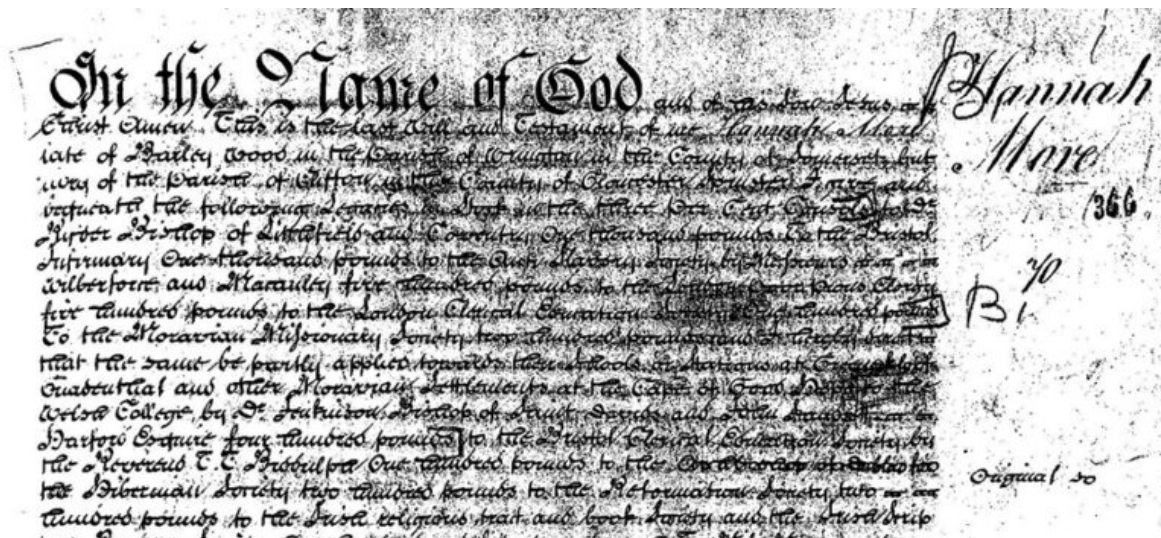 In the Name of God and of his Son Jesus
Christ Amen This is the last Will and Testament of me Hannah More
late of Barley Wood in the Parish of Wrington in the County of Somerset but
now of the Parish of Clifton in the County of Gloucester Spinster I give and
bequeath the following Legacies in the three Per Cent to Dr
Ryder Bishop of Litchfield and Coventry One thousand pounds To the Bristol
Infirmary One thousand pounds to the Anti Slavery Society by Messieurs
Wilberforce and Macauley five hundred pounds to the Clergy
five hundred pounds to the London Clerical Education Society One hundred pounds
To the Moravian Missionary Society two hundred pounds and I hereby direct
that the same be partly applied towards their Schools or Stations at
Gnadenthal and other Moravian Settlements at the Cape of Good Hope to the
Welsh College by Dr Jenkinson Bishop of Saint Davids and
Harford Esquire four hundred pounds to the Bristol Clerical Education Society by
the Reverend T. T. Biddulph One hundred pounds to the
the Hibernian Society two hundred pounds to the Reformation Society two
hundred pounds to the Irish religious tract and book Society and the Irish
Hannah
More
366
70
B 1
Original so